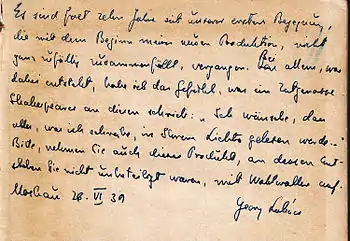 Es sind fast zehn Jahre seit unserer ersten Begegnung,
die mit dem Beginn meiner neuen Produktion, nicht
ganz zufällig zusammenfällt, vergangen. Bei allem, was
dabei entsteht, habe ich das Gefühl, was ein Zeitgenosse
Shakespeares an diesen schrieb: „Ich wünsche, dass
alles, was ich schreibe, in Ihrem Lichte gelesen werde..."
Bitte, nehmen Sie auch dieses Produkt, an dessen Ent-
stehen Sie nicht unbeteiligt waren, mit Wohlwollen auf.
Moskau 28. VI 39
Georg Lukács